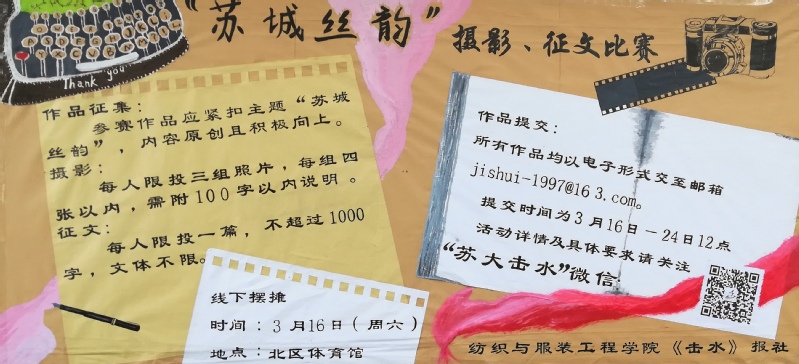 “苏城丝韵”摄影、征文比赛
Thank you
作品征集：
参赛作品应紧扣主题“苏城
丝韵”，内容原创且积极向上。
摄影：
每人限投三组照片，每组四
张以内，需附100字以内说明。
征文：
每人限投一篇，不超过1000
字，文体不限。
线下摆摊
时间：3月16日（周六）
地点：北区体育馆
作品提交：
所有作品均以电子形式交至邮箱
jishui-1997@163.com。
提交时间为3月16日－24日12点
活动详情及具体要求请关注
“苏大击水”微信
纺织与服装工程学院《击水》报社